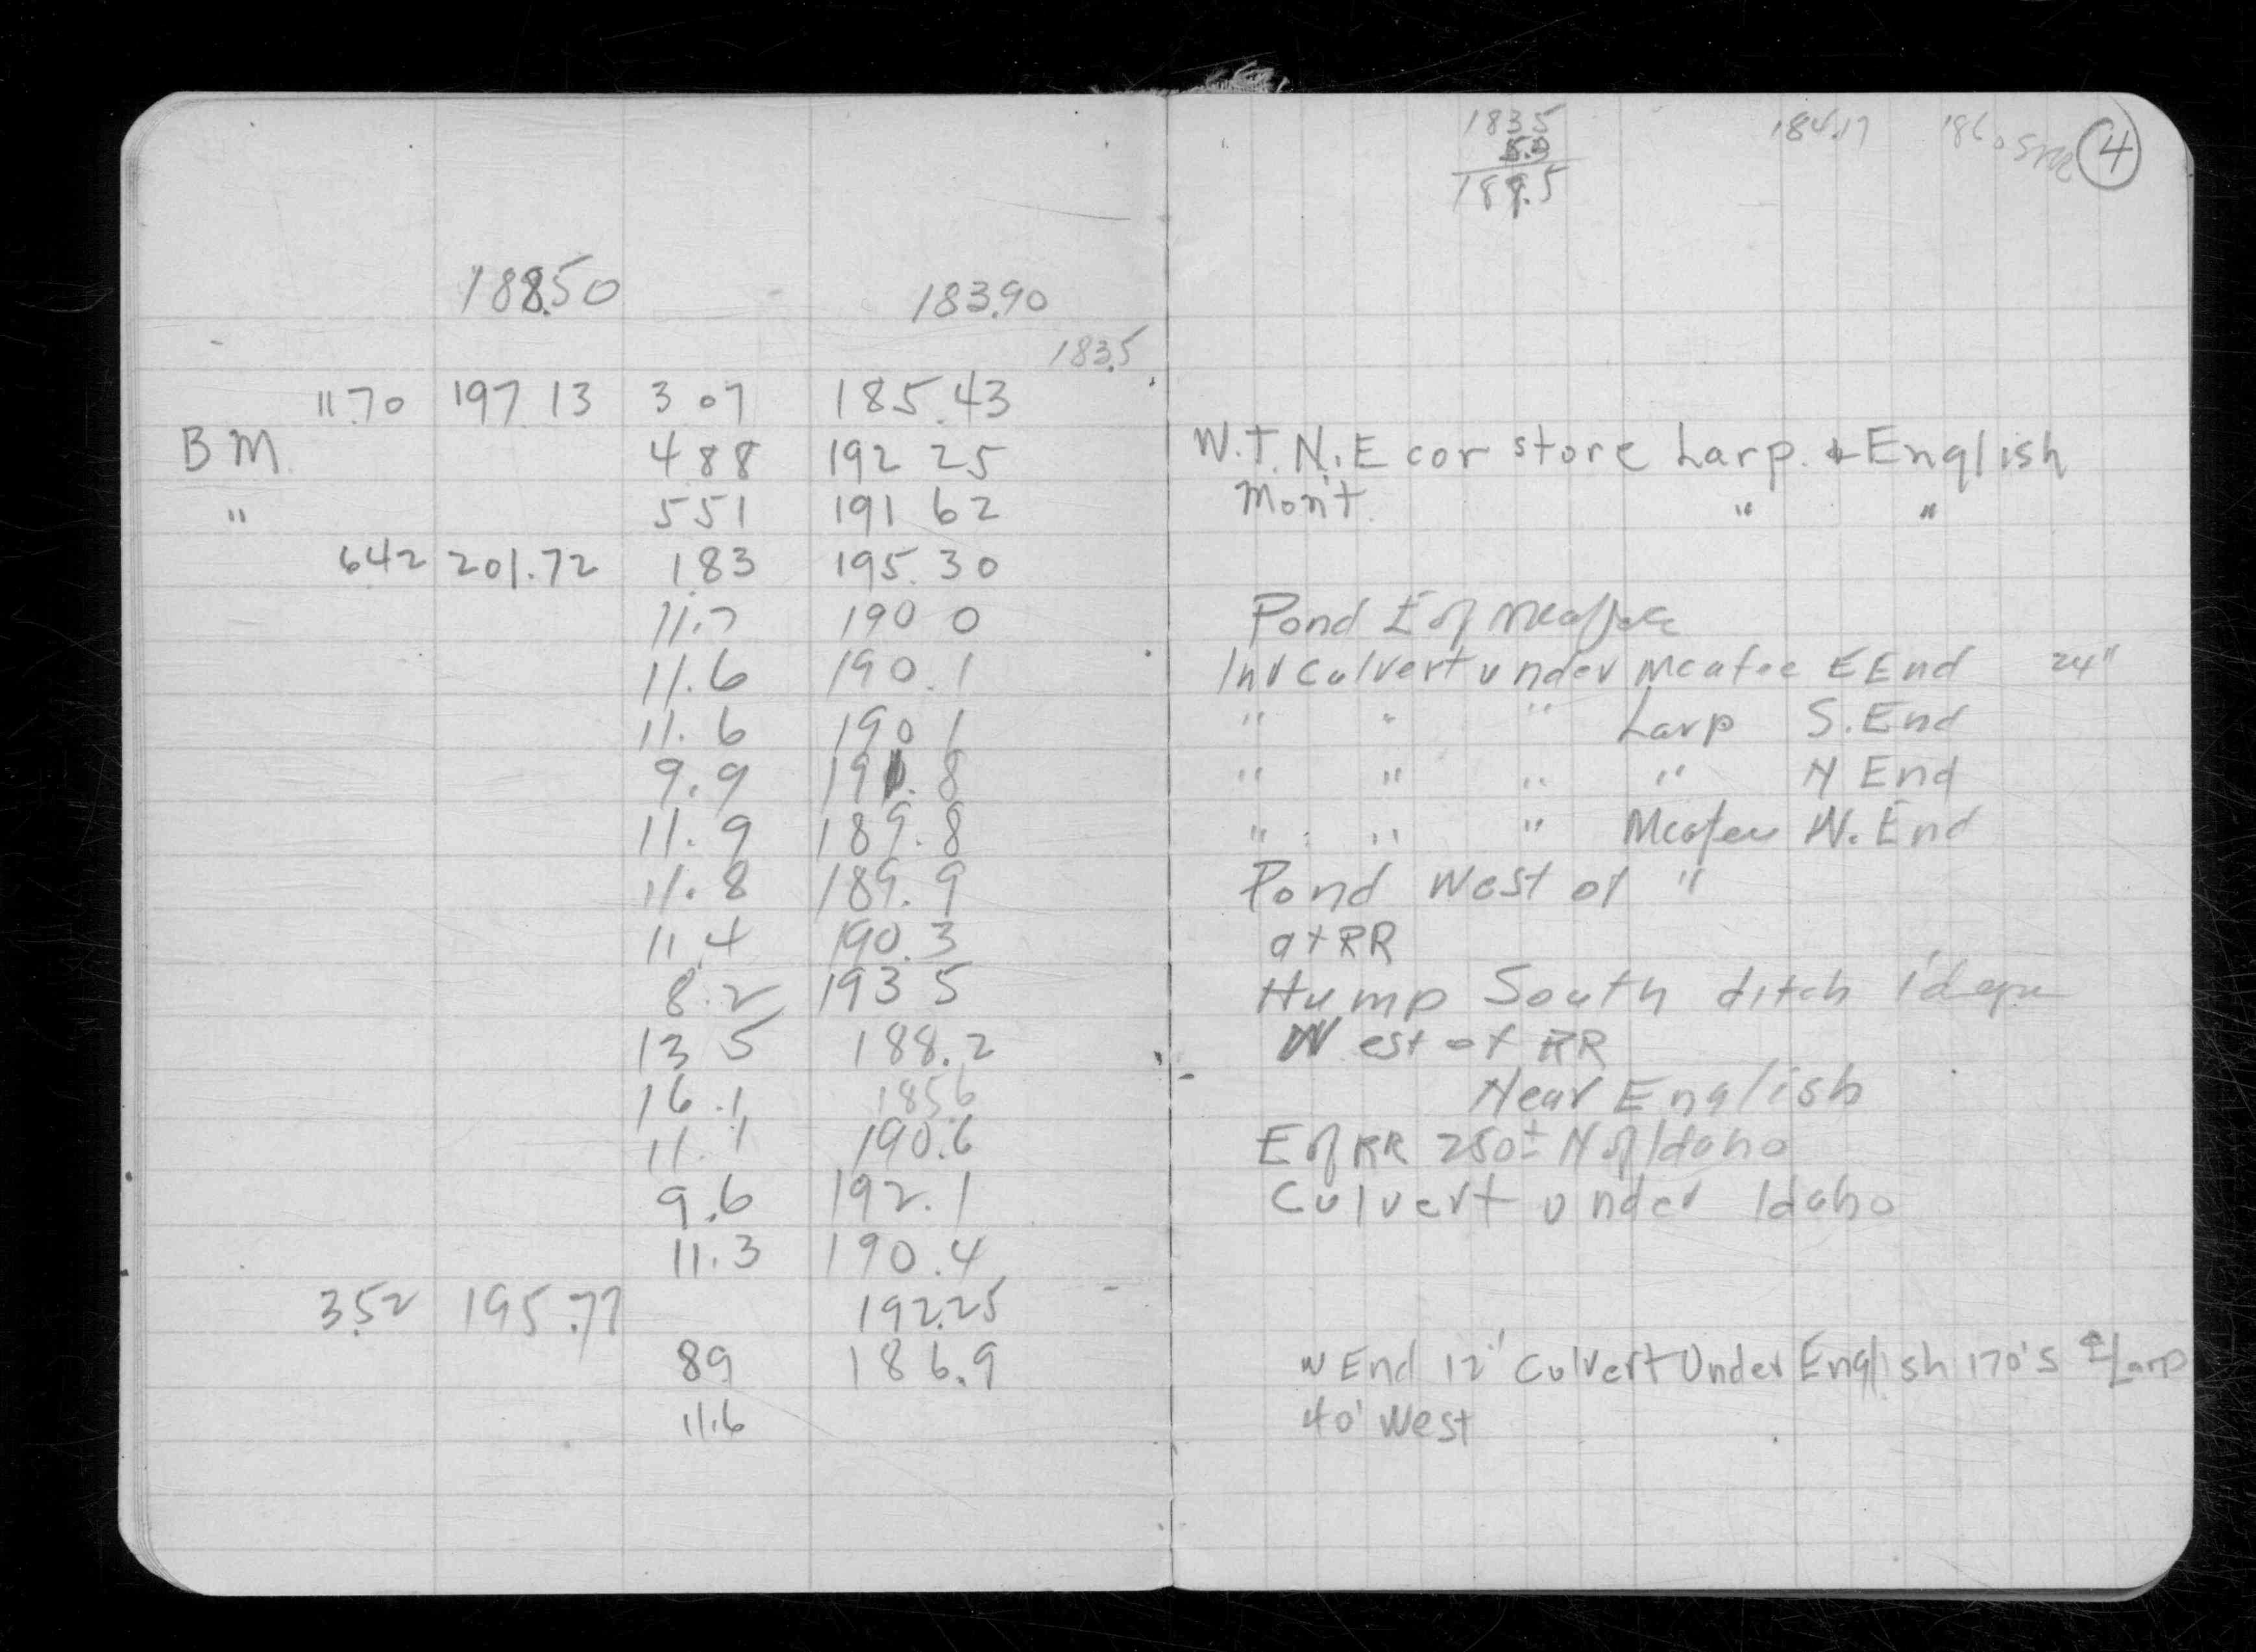 188.50 183.90
183.5
11.70 197 13 3 07 185.43
B M. 4 88 192 25
" 5 51 191 62
6 42 201.72 1.83 195.30
11.7 190 0
11.6 190.1
11.6 190 1
9.9 191.8
11.9 189.8
11.8 189.9
11.4 190.3
8.2 193 5
13 5 188.2
16.1 185.6
11.1 190.6
9.6 192.1
11.3 190.4
3.52 195.77 192.25
89 186.9
11.6
183.5 184.17 186.0 4
189.5
W.T. N.E cor store Larp. & English
Mon't. " "
Pond E of McAfee
Inv Culvert under McAfee E End 24"
" " " Larp S. End
" " " " N End
" " " McAfee W. End
Pond West of "
at RR
Hump South ditch 1'
West of RR
Near English
E of RR 250± N of Idaho
Culvert under Idaho
W End 12" Culvert Under English 170' S Larp
40' West